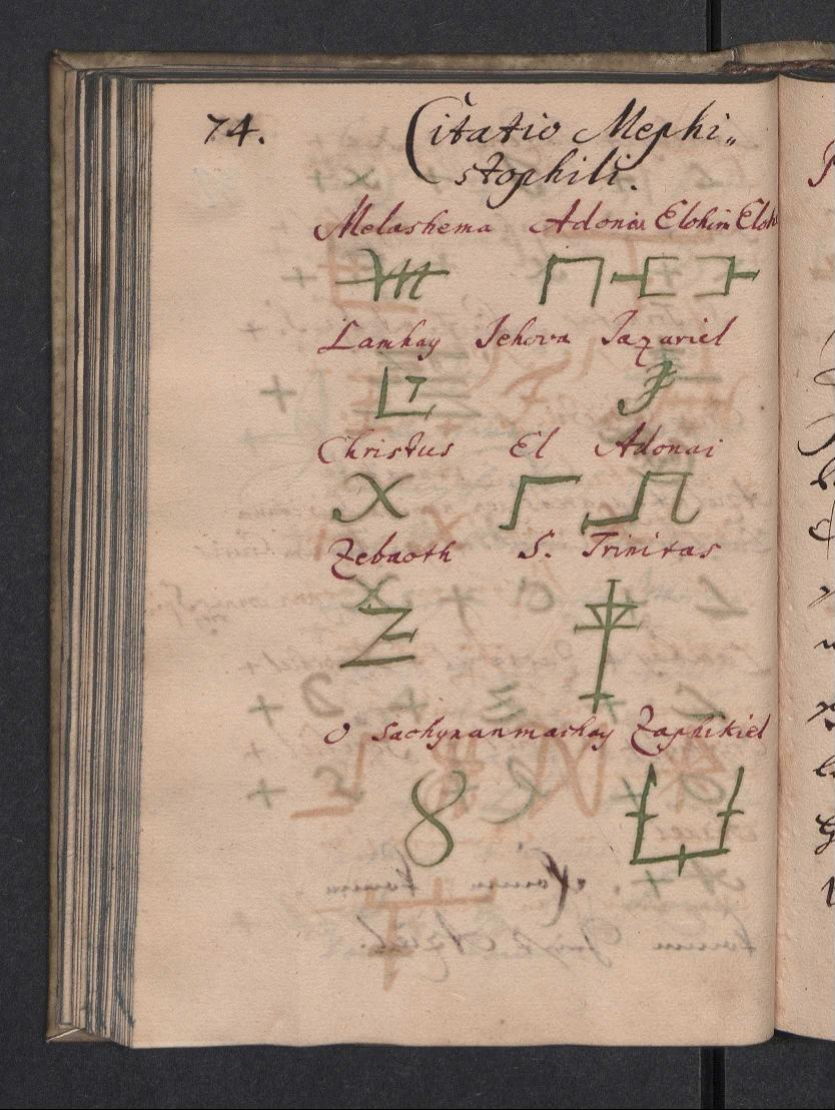 74. Citatio Mephi„
stophili.
Melashema Adonai Elohim Eloh
Lamhay Jehova Jazariel
Christus El Adonai
Zebaoth S. Trinitas
O Sachynanmashay Zaphikiel